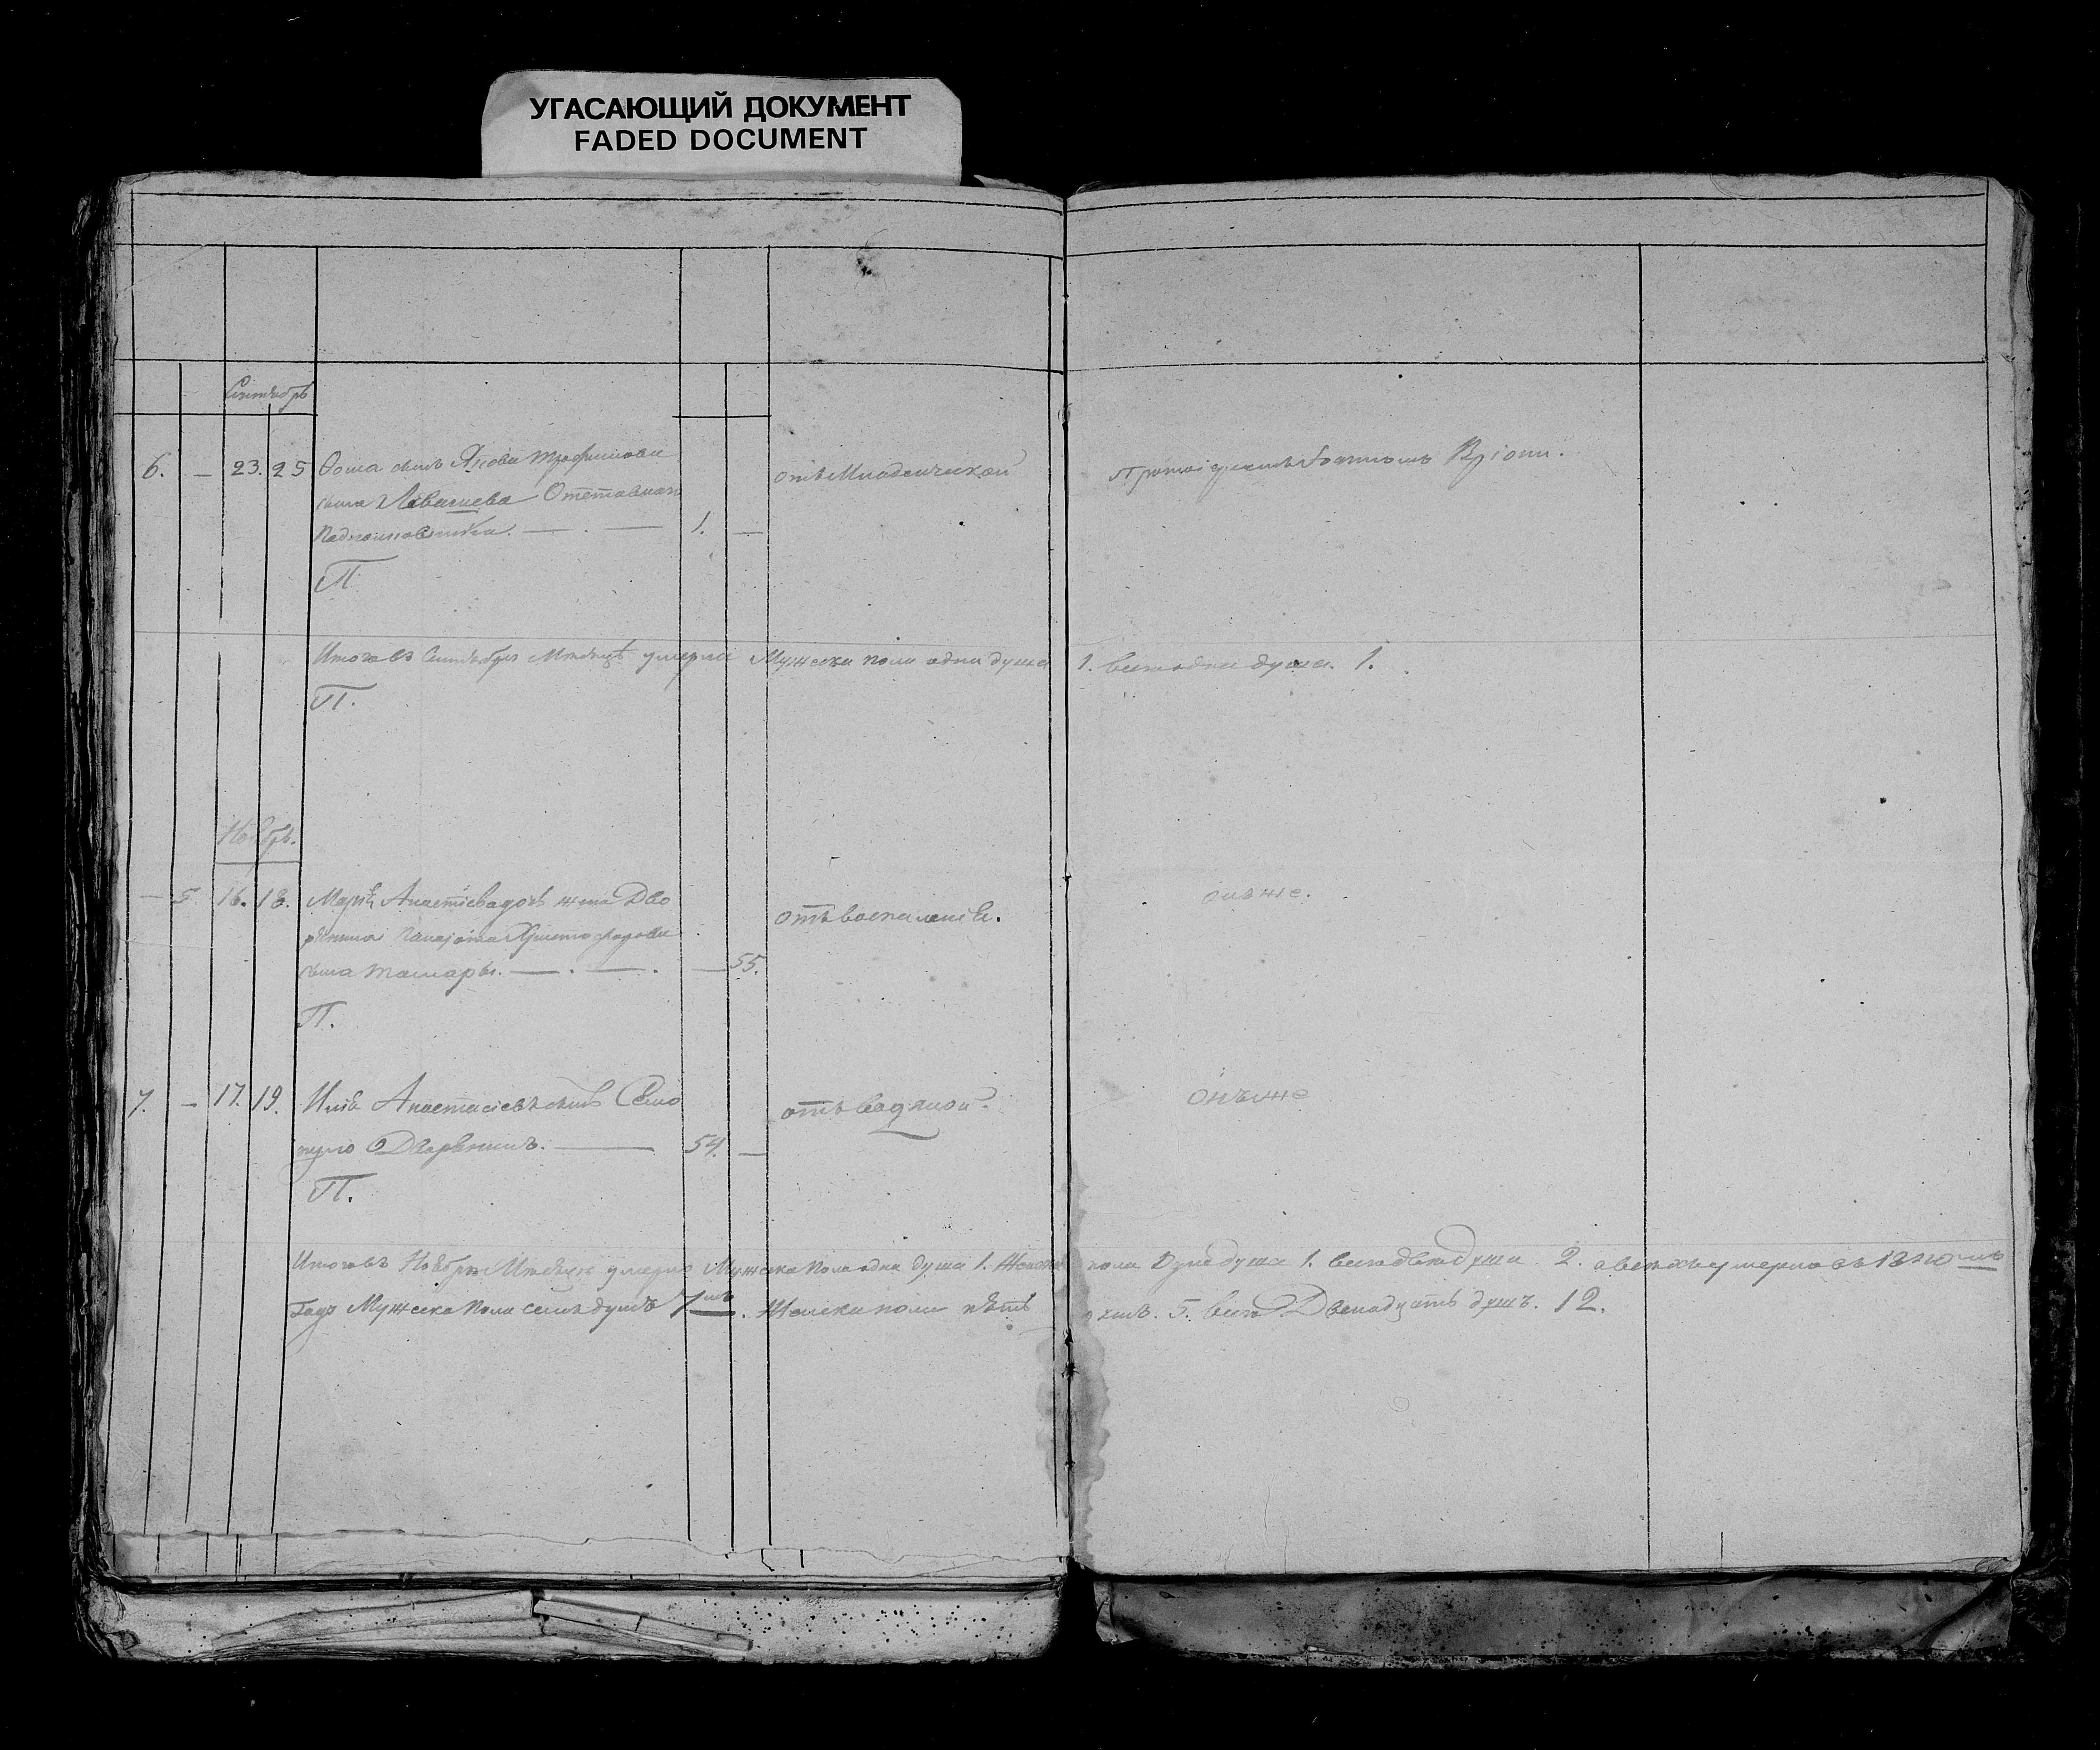 УГАСАЮЩИЙ ДОКУМЕНТ
FADED DOCUMENT
Сентябрь
6. — 23. 25 Ѳома сынъ Якова Трофимова
сына Отставнаго
Подполковника. — . — 1. —
отъ Младенческой
Протоіереемъ Іоанномъ
П
Итого въ Сентябрѣ Мѣсяцѣ умерло Мужеска пола одна душа 1. всего одна душа. 1.
П.
Ноябрь.
— 5 16. 18. Марія жена Дво
рянина Панаіота Христофорова
сына — . — . — 55.
отъ воспаленія.
онъ же.
П.
7. — 17. 19. Илія Анастасіевъ сынъ
Дворянинъ. — 54. —
отъ водяной.
онъ же
П.
Итого въ Ноябрѣ Мѣсяцѣ умерло Мужеска пола одна душа 1. Женска пола Одна душа 1. всего двѣ души 2. а всѣхъ умерло въ
Году Мужеска Пола семь душъ 7. Женска пола пять душъ. 5. всего Двенадцать душъ. 12.